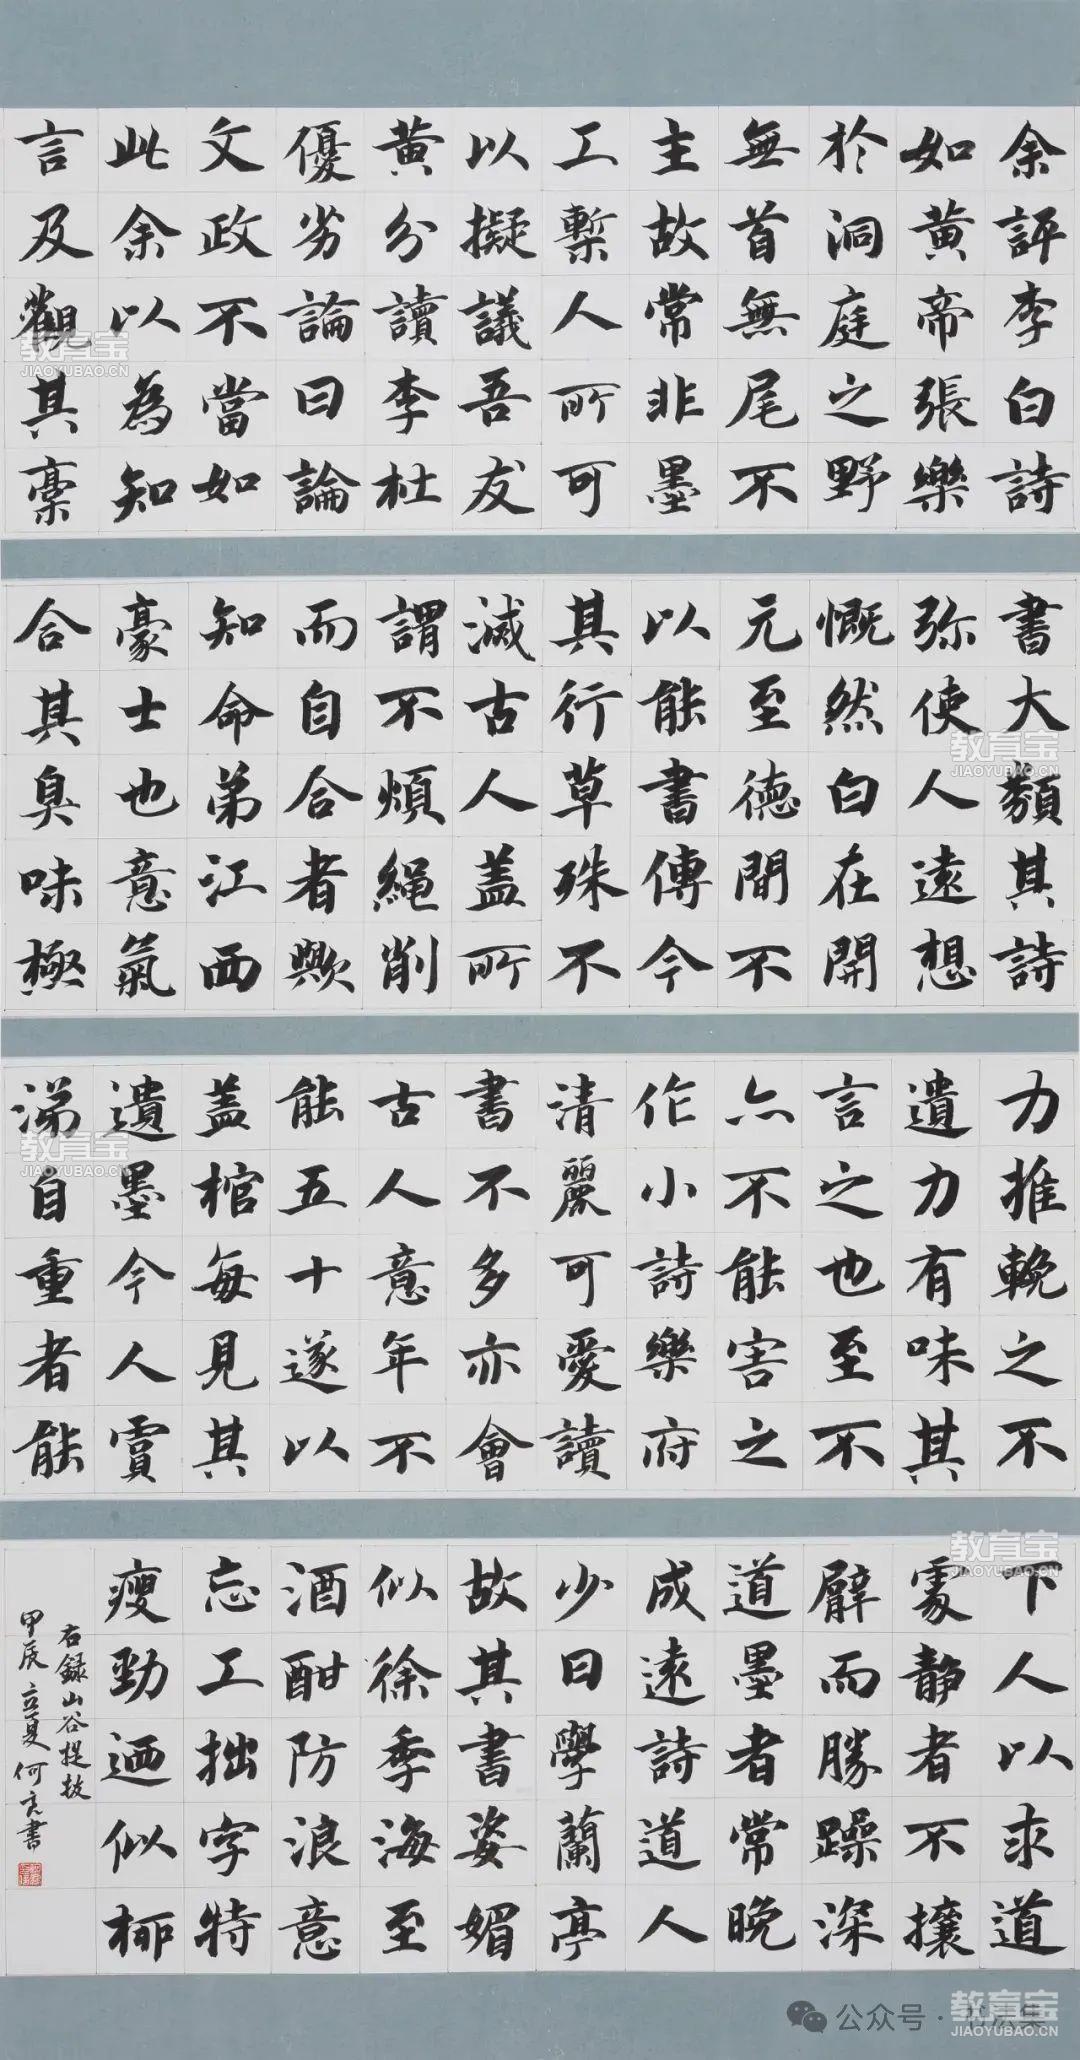 余評李白詩
如黄帝張樂
於洞庭之野
無首無尾不
主故常非墨
工槧人所可
以擬議吾友
黄分讀李杜
優劣論曰論
文政不當如
此余以為知
言及觀其稾
書大類其詩
弥使人遠想
慨然白在開
元至德間不
以能書傳今
其行草殊不
減古人蓋所
謂不煩繩削
而自合者歟
知命弟江西
豪士也意氣
合其臭味極
力推輓之不
遺力有味其
言之也至不
亦不能害之
作小詩樂府
清麗可愛讀
書不多亦會
古人意年不
能五十遂以
蓋棺每見其
遺墨今人霣
涕自重者能
下人以求道
處静者不攘
臂而勝躁深
道墨者常晚
成遠詩道人
少日學蘭亭
故其書姿媚
似徐季海至
酒酣防浪意
忘工拙字特
瘦勁迺似栁
右録山谷提拔
甲辰立夏何亮書
教育宝
JIAOYUBAO.CN
教育宝
JIAOYUBAO.CN
教育宝
JIAOYUBAO.CN
教育宝
JIAOYUBAO.CN
公众号 ·
教育宝
JIAOYUBAO.CN